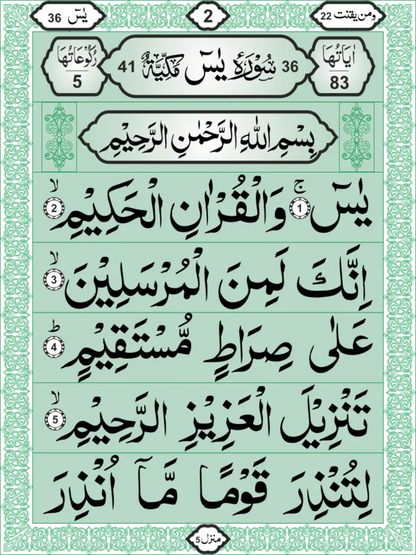 ومن يقنت 22
2
يٰسٓ 36
اٰيَاتُهَا 83
36 سُوْرَةُ يٰسٓ مَكِّيَّةٌ 41
رُكُوْعَاتُهَا 5
بِسْمِ اللّٰهِ الرَّحْمٰنِ الرَّحِيْمِ
يٰسٓ ۚ ۝1 وَالْقُرْاٰنِ الْحَكِيْمِ ۙ ۝2
اِنَّكَ لَمِنَ الْمُرْسَلِيْنَ ۙ ۝3
عَلٰى صِرَاطٍ مُّسْتَقِيْمٍ ؕ ۝4
تَنْزِيْلَ الْعَزِيْزِ الرَّحِيْمِ ۙ ۝5
لِتُنْذِرَ قَوْمًا مَّاۤ اُنْذِرَ
منزل 5